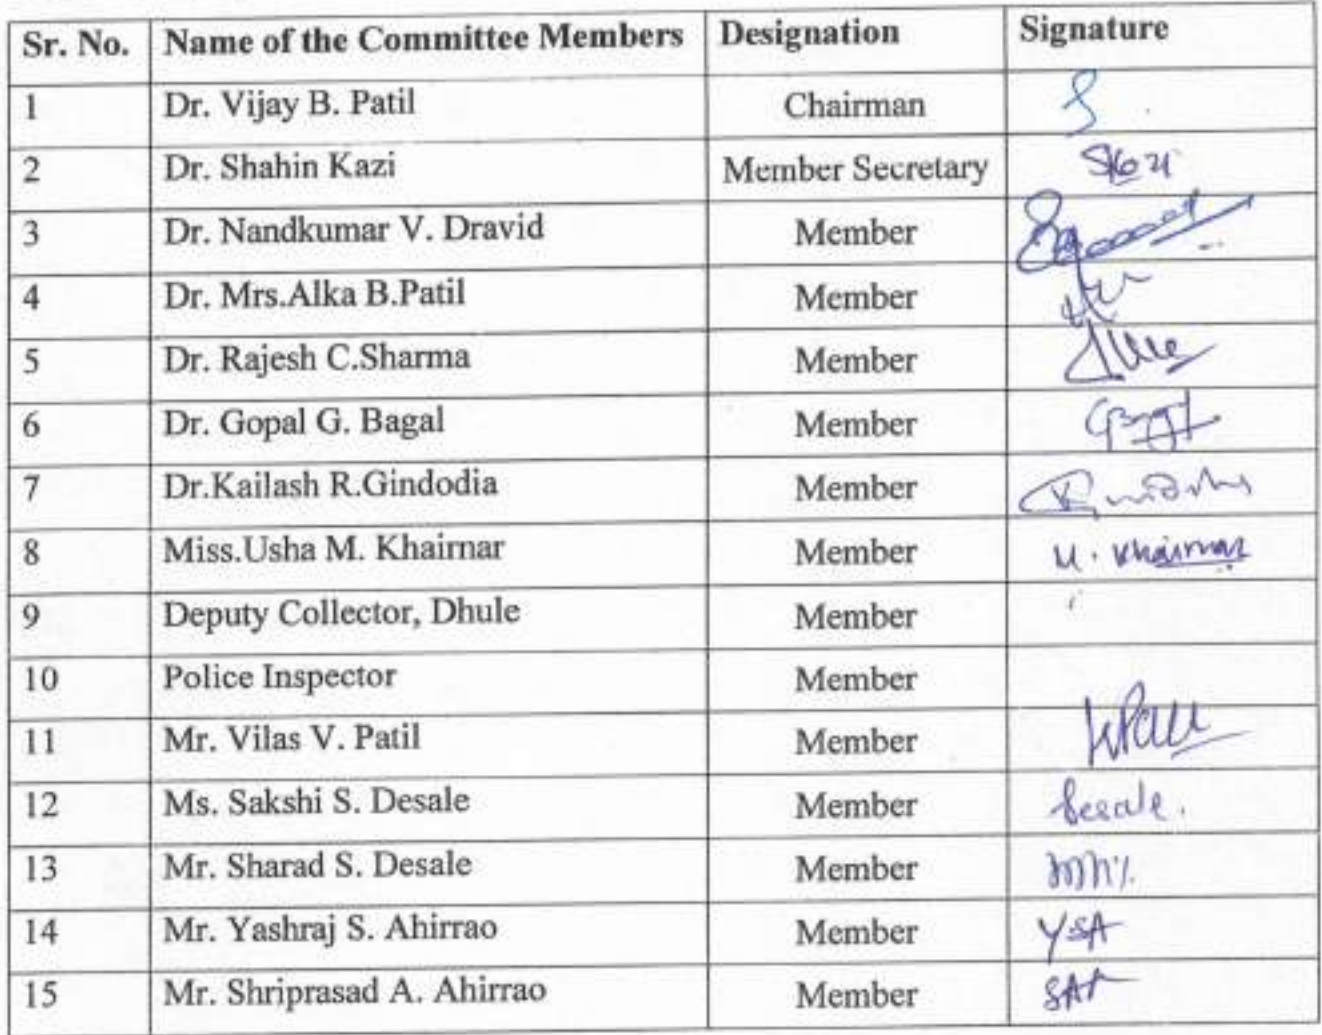 Sr. No. Name of the Committee Members Designation Signature
1 Dr. Vijay B. Patil Chairman
2 Dr. Shahin Kazi Member Secretary
3 Dr. Nandkumar V. Dravid Member
4 Dr. Mrs.Alka B.Patil Member
5 Dr. Rajesh C.Sharma Member
6 Dr. Gopal G. Bagal Member
7 Dr.Kailash R.Gindodia Member
8 Miss.Usha M. Khairnar Member U. Khairnar
9 Deputy Collector, Dhule Member
10 Police Inspector Member
11 Mr. Vilas V. Patil Member
12 Ms. Sakshi S. Desale Member Desale.
13 Mr. Sharad S. Desale Member
14 Mr. Yashraj S. Ahirrao Member YSA
15 Mr. Shriprasad A. Ahirrao Member SAA